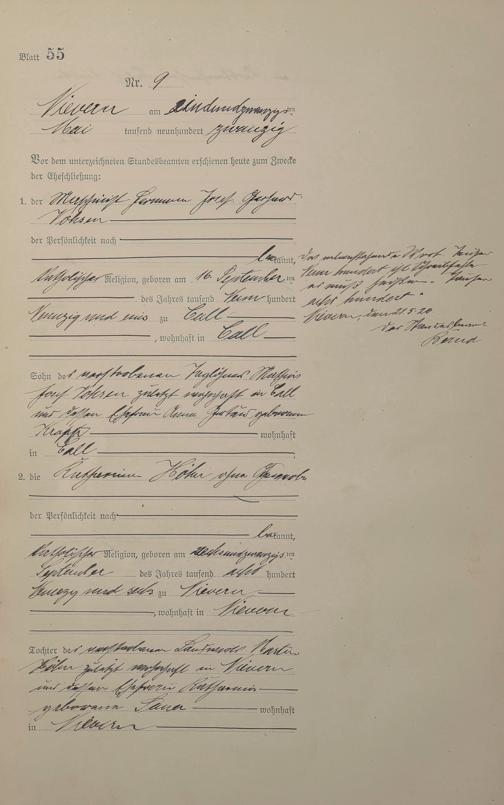 Blatt 55
Nr. 9
Nievern am einundzwanzigsten
Mai tausend neunhundert zwanzig
Vor dem unterzeichneten Standesbeamten erschienen heute zum Zwecke
der Eheschließung:
1. der Maschinist Hermann Josef Gerhard
Vohsen
der Persönlichkeit nach
bekannt,
katholischer Religion, geboren am 16. September
des Jahres tausend neun hundert
neunzig und eins zu Call
, wohnhaft in Call
Sohn des verstorbenen Taglöhners Mathias
Josef Vohsen zuletzt wohnhaft in Call
und dessen Ehefrau Anna geborenen
wohnhaft
in Call
2. die Katharina Höhn ohne Gewerbe
der Persönlichkeit nach
bekannt,
katholischer Religion, geboren am sechsundzwanzigsten
September des Jahres tausend acht hundert
neunzig und sechs zu Nievern
, wohnhaft in Nievern
Tochter des verstorbenen Landwirts Martin
Höhn zuletzt wohnhaft in Nievern
und dessen Ehefrau Katharina
geborene wohnhaft
in Nievern
Das Wort tausend
neun hundert ist Schreibfehler
es muß heißen "tausend
acht hundert"
Nievern, den 21.5.20
Der Standesbeamte